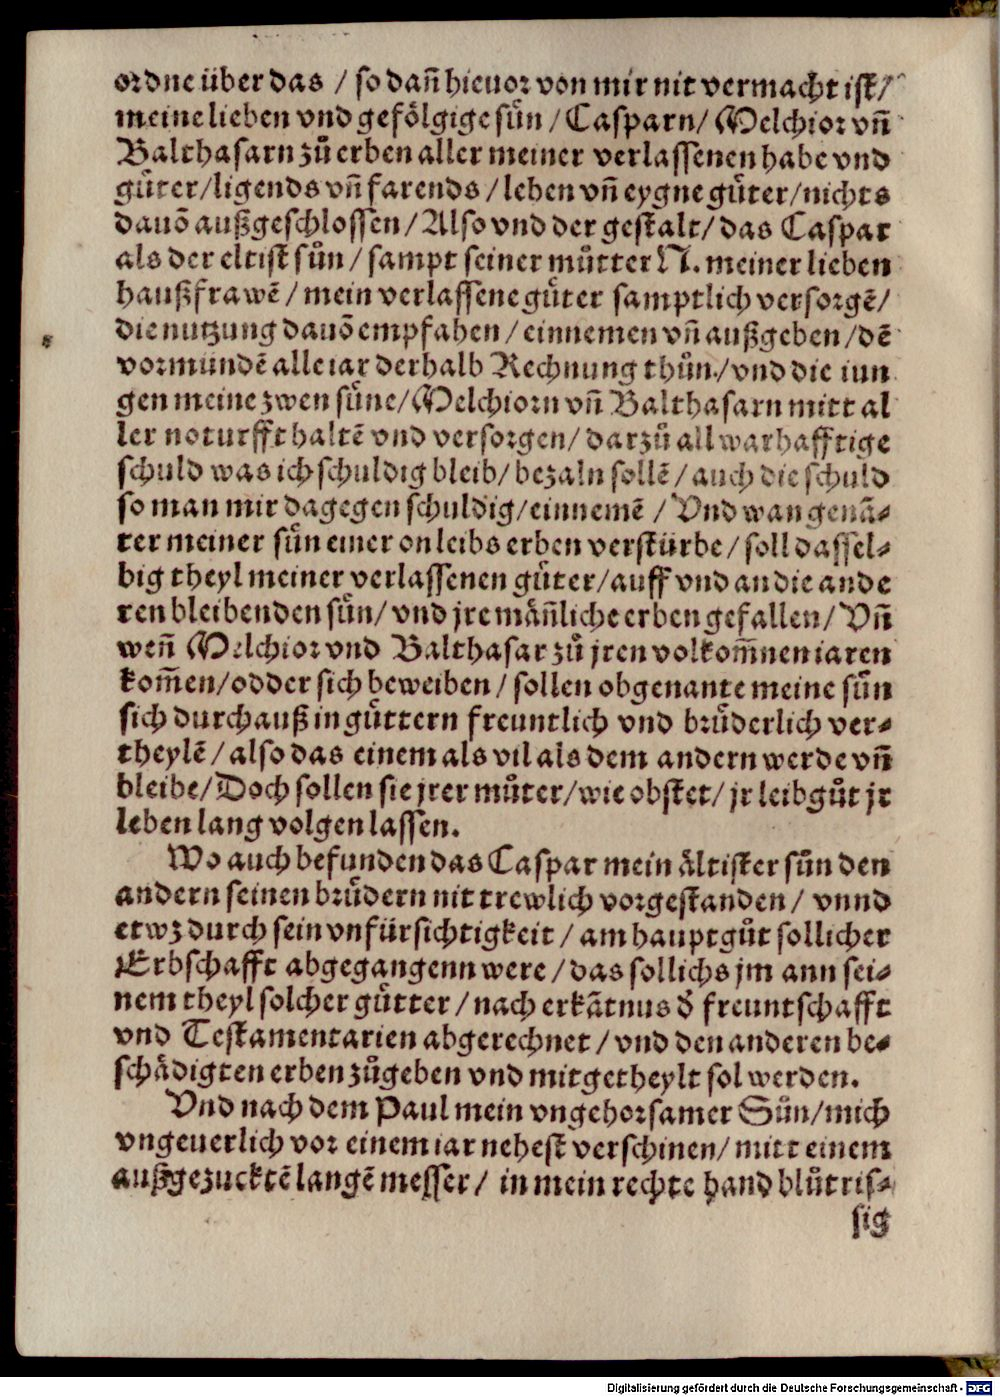 ordne über das / so dañ hieuor von mir nit vermacht ist/
meine lieben vnd gefölgige sün / Casparn/ Melchior vñ
Balthasarn zů erben aller meiner verlassenen habe vnd
gůter/ligends vñ farends / lehen vñ eygne gůter/nichts
dauõ außgeschlossen/ Also vnd der gestalt/ das Caspar
als der eltist sůn / sampt seiner můtter N. meiner lieben
haußfrawẽ / mein verlassene gůter samptlich versorgẽ/
die nutzung dauõ empfahen / einnemen vñ außgeben /dẽ
vormundẽ alle iar derhalb Rechnung thůn/vnd die iun
gen meine zwen sůne/Melchiorn vñ Balthasarn mitt al
ler noturfft haltẽ vnd versorgen/ darzů all warhafftige
schuld was ich schuldig bleib/ bezaln sollẽ / auch die schuld
so man mir dagegen schuldig/einnemẽ / Vnd wan genã-
ter meiner sůn einer on leibs erben verstürbe/ soll dassel-
big theyl meiner verlassenen gůter/auff vnd an die ande
ren bleibenden sůn/ vnd jre mäñliche erben gefallen/ Vñ
weñ Melchior vnd Balthasar zů jren volkom̃nen iaren
kom̃en/odder sich beweiben / sollen obgenante meine sůn
sich durchauß in gůttern freuntlich vnd brůderlich ver-
theylẽ / also das einem als vil als dem andern werde vñ
bleibe/Doch sollen sie jrer můter/wie obstet/ jr leibgůt jr
leben lang volgen lassen.
Wo auch befunden das Caspar mein ältister sůn den
andern seinen brůdern nit trewlich vorgestanden / vnnd
etwz durch sein vnfürsichtigkeit / am hauptgůt sollicher
Erbschafft abgegangenn were /das sollichs jm ann sei-
nem theyl solcher gůtter / nach erkãtnus d̄ freuntschafft
vnd Testamentarien abgerechnet / vnd den anderen be-
schädigten erben zůgeben vnd mitgetheylt sol werden.
Vnd nach dem Paul mein vngehorsamer Sůn/mich
vngeuerlich vor einem iar nehest verschinen/ mitt einem
außgezucktẽ langẽ messer/ in mein rechte hand blůtris-
sig
Digitalisierung gefördert durch die Deutsche Forschungsgemeinschaft - DFG